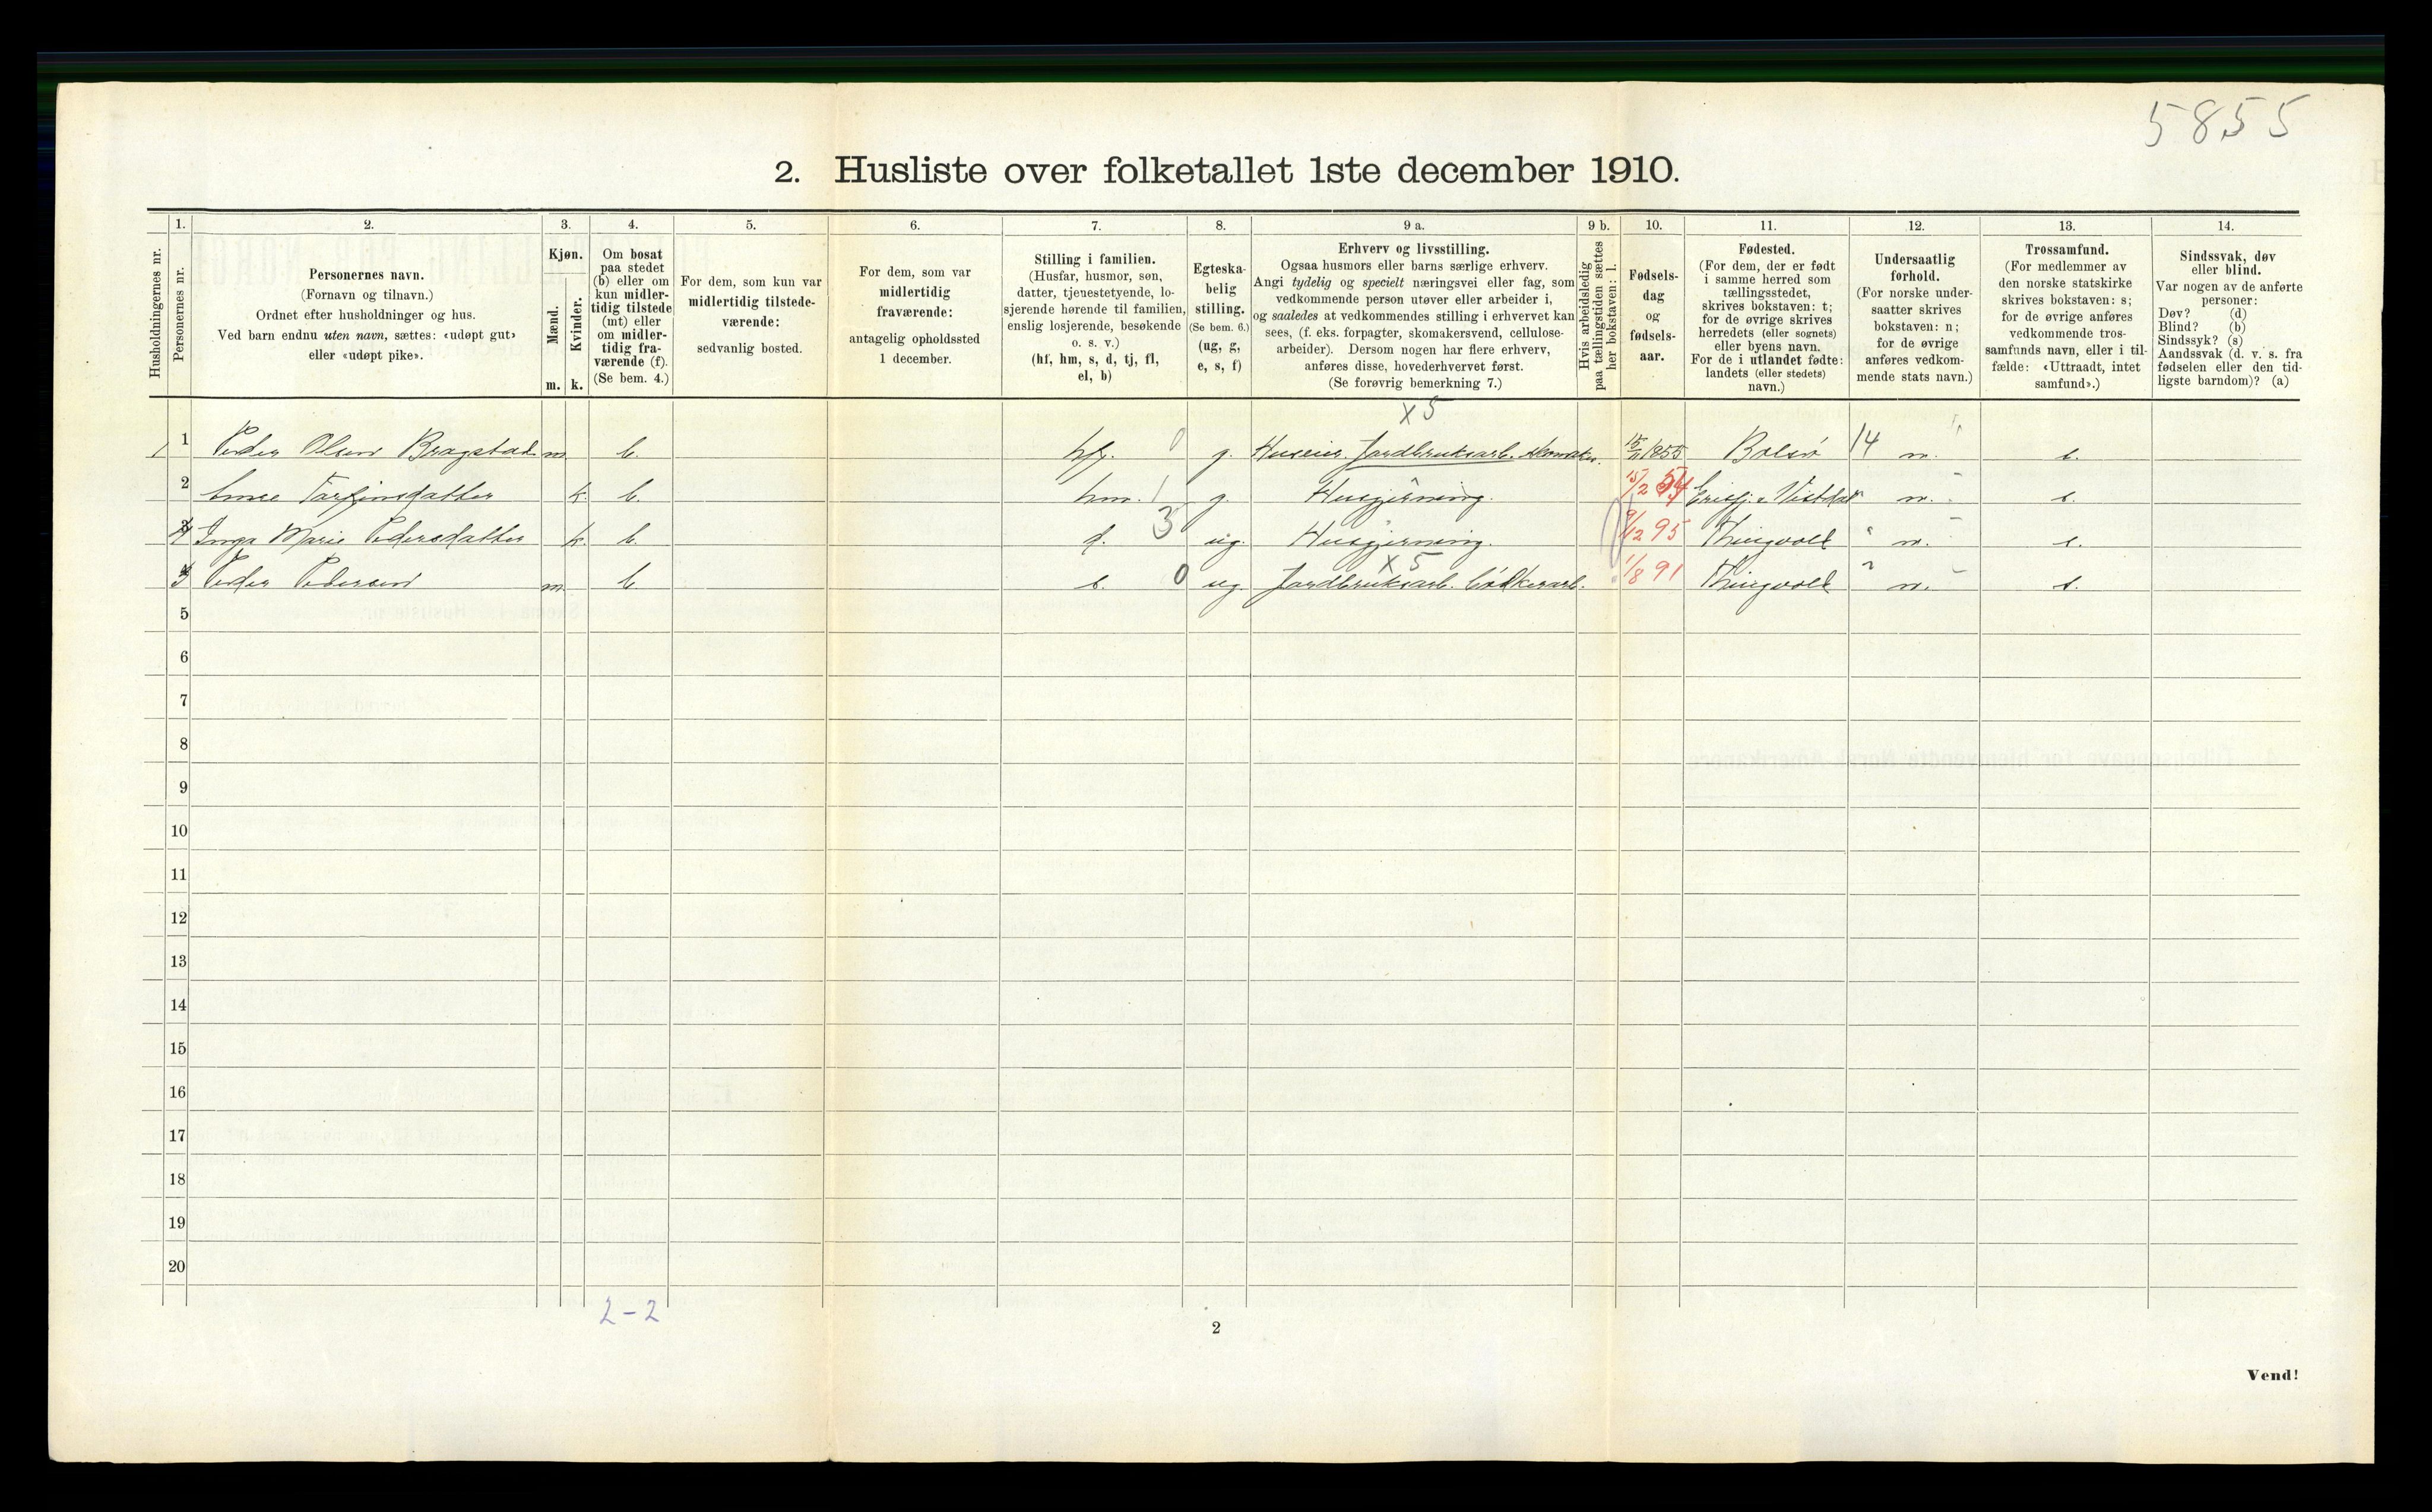 5855
2. Husliste over folketallet 1ste december 1910.
Husholdningernes nr.
1.
Personernes nr.
2.
Personernes navn.
(Fornavn og tilnavn.)
Ordnet efter husholdninger og hus.
Ved barn endnu uten navn, sættes: «udøpt gut»
eller «udøpt pike».
3.
Kjøn.
Mænd.
Kvinder.
m. k.
4.
Om bosat
paa stedet
(b) eller om
kun midler-
tidig tilstede
(mt) eller
om midler-
tidig fra-
værende (f).
(Se bem. 4.)
5.
For dem, som kun var
midlertidig tilstede-
værende:
sedvanlig bosted.
6.
For dem, som var
midlertidig
fraværende:
antagelig opholdssted
1 december.
7.
Stilling i familien.
(Husfar, husmor, søn,
datter, tjenestetyende, lo-
sjerende hørende til familien,
enslig losjerende, besøkende
o. s. v.)
(hf, hm, s, d, tj, fl,
el, b)
8.
Egteska-
belig
stilling.
(Se bem. 6.)
(ug, g,
e, s, f)
9 a.
Erhverv og livsstilling.
Ogsaa husmors eller barns særlige erhverv.
Angi tydelig og specielt næringsvei eller fag, som
vedkommende person utøver eller arbeider i,
og saaledes at vedkommendes stilling i erhvervet kan
sees, (f. eks. forpagter, skomakersvend, cellulose-
arbeider). Dersom nogen har flere erhverv,
anføres disse, hovederhvervet først.
(Se forøvrig bemerkning 7.)
9 b.
Hvis arbeidsledig
paa tællingstiden sættes
her bokstaven: l.
10.
Fødsels-
dag
og
fødsels-
aar.
11.
Fødested.
(For dem, der er født
i samme herred som
tællingsstedet,
skrives bokstaven: t;
for de øvrige skrives
herredets (eller sognets)
eller byens navn.
For de i utlandet fødte:
landets (eller stedets)
navn.)
12.
Undersaatlig
forhold.
(For norske under-
saatter skrives
bokstaven: n;
for de øvrige
anføres vedkom-
mende stats navn.)
13.
Trossamfund.
(For medlemmer av
den norske statskirke
skrives bokstaven: s;
for de øvrige anføres
vedkommende tros-
samfunds navn, eller i til-
fælde: «Uttraadt, intet
samfund».)
14.
Sindssvak, døv
eller blind.
Var nogen av de anførte
personer:
Døv? (d)
Blind? (b)
Sindssyk? (s)
Aandssvak (d. v. s. fra
fødselen eller den tid-
ligste barndom)? (a)
x 5
1 1 Peder Olsen Bragstad m. b. hf. 0 g. Huseier. Jordbruksarb. Skomaker. 15/11 1855 Bolsø 14 n. s.
2 Torfinsdatter k. b. hm. 1 g. Husgjerning. 15/2 54 Vistdal n. s.
Inga Marie Pedersdatter k. b. d. 3 ug. Husgjerning. 9/12 95 Thingvoll " n. s.
x 5
Peder Pedersen m. b. s. 0 ug. Jordbruksarb. Bødkerarb. 1/8 91 Thingvoll " n. s.
5
6
7
8
9
10
11
12
13
14
15
16
17
18
19
20
2-2
2
Vend!